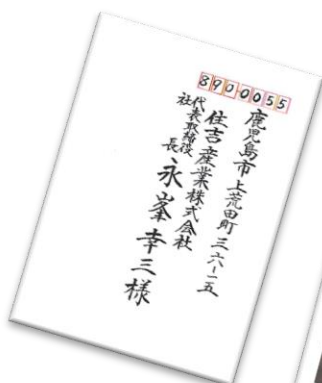 890-0055
鹿児島市上荒田町三六ー五
住吉産業株式会社
代表取締役
社長
永峯幸三様